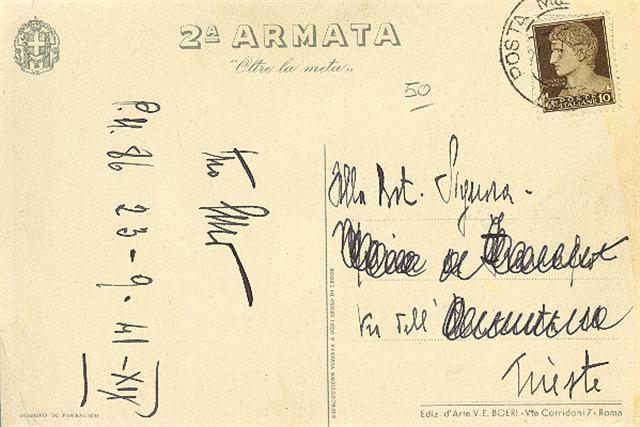 2ª ARMATA
"Oltre la meta"
POSTA
POSTE ITALIANE 10
50
P.M. 86 23-9-41-XIX
Alla
Signora
Via dell'
Trieste
RIPRODUZIONE VIETATA A OGNI SENSO DI LEGGE
DISEGNO DI
Ediz. d'Arte V. E. BOERI - Via Corridoni 7 - Roma